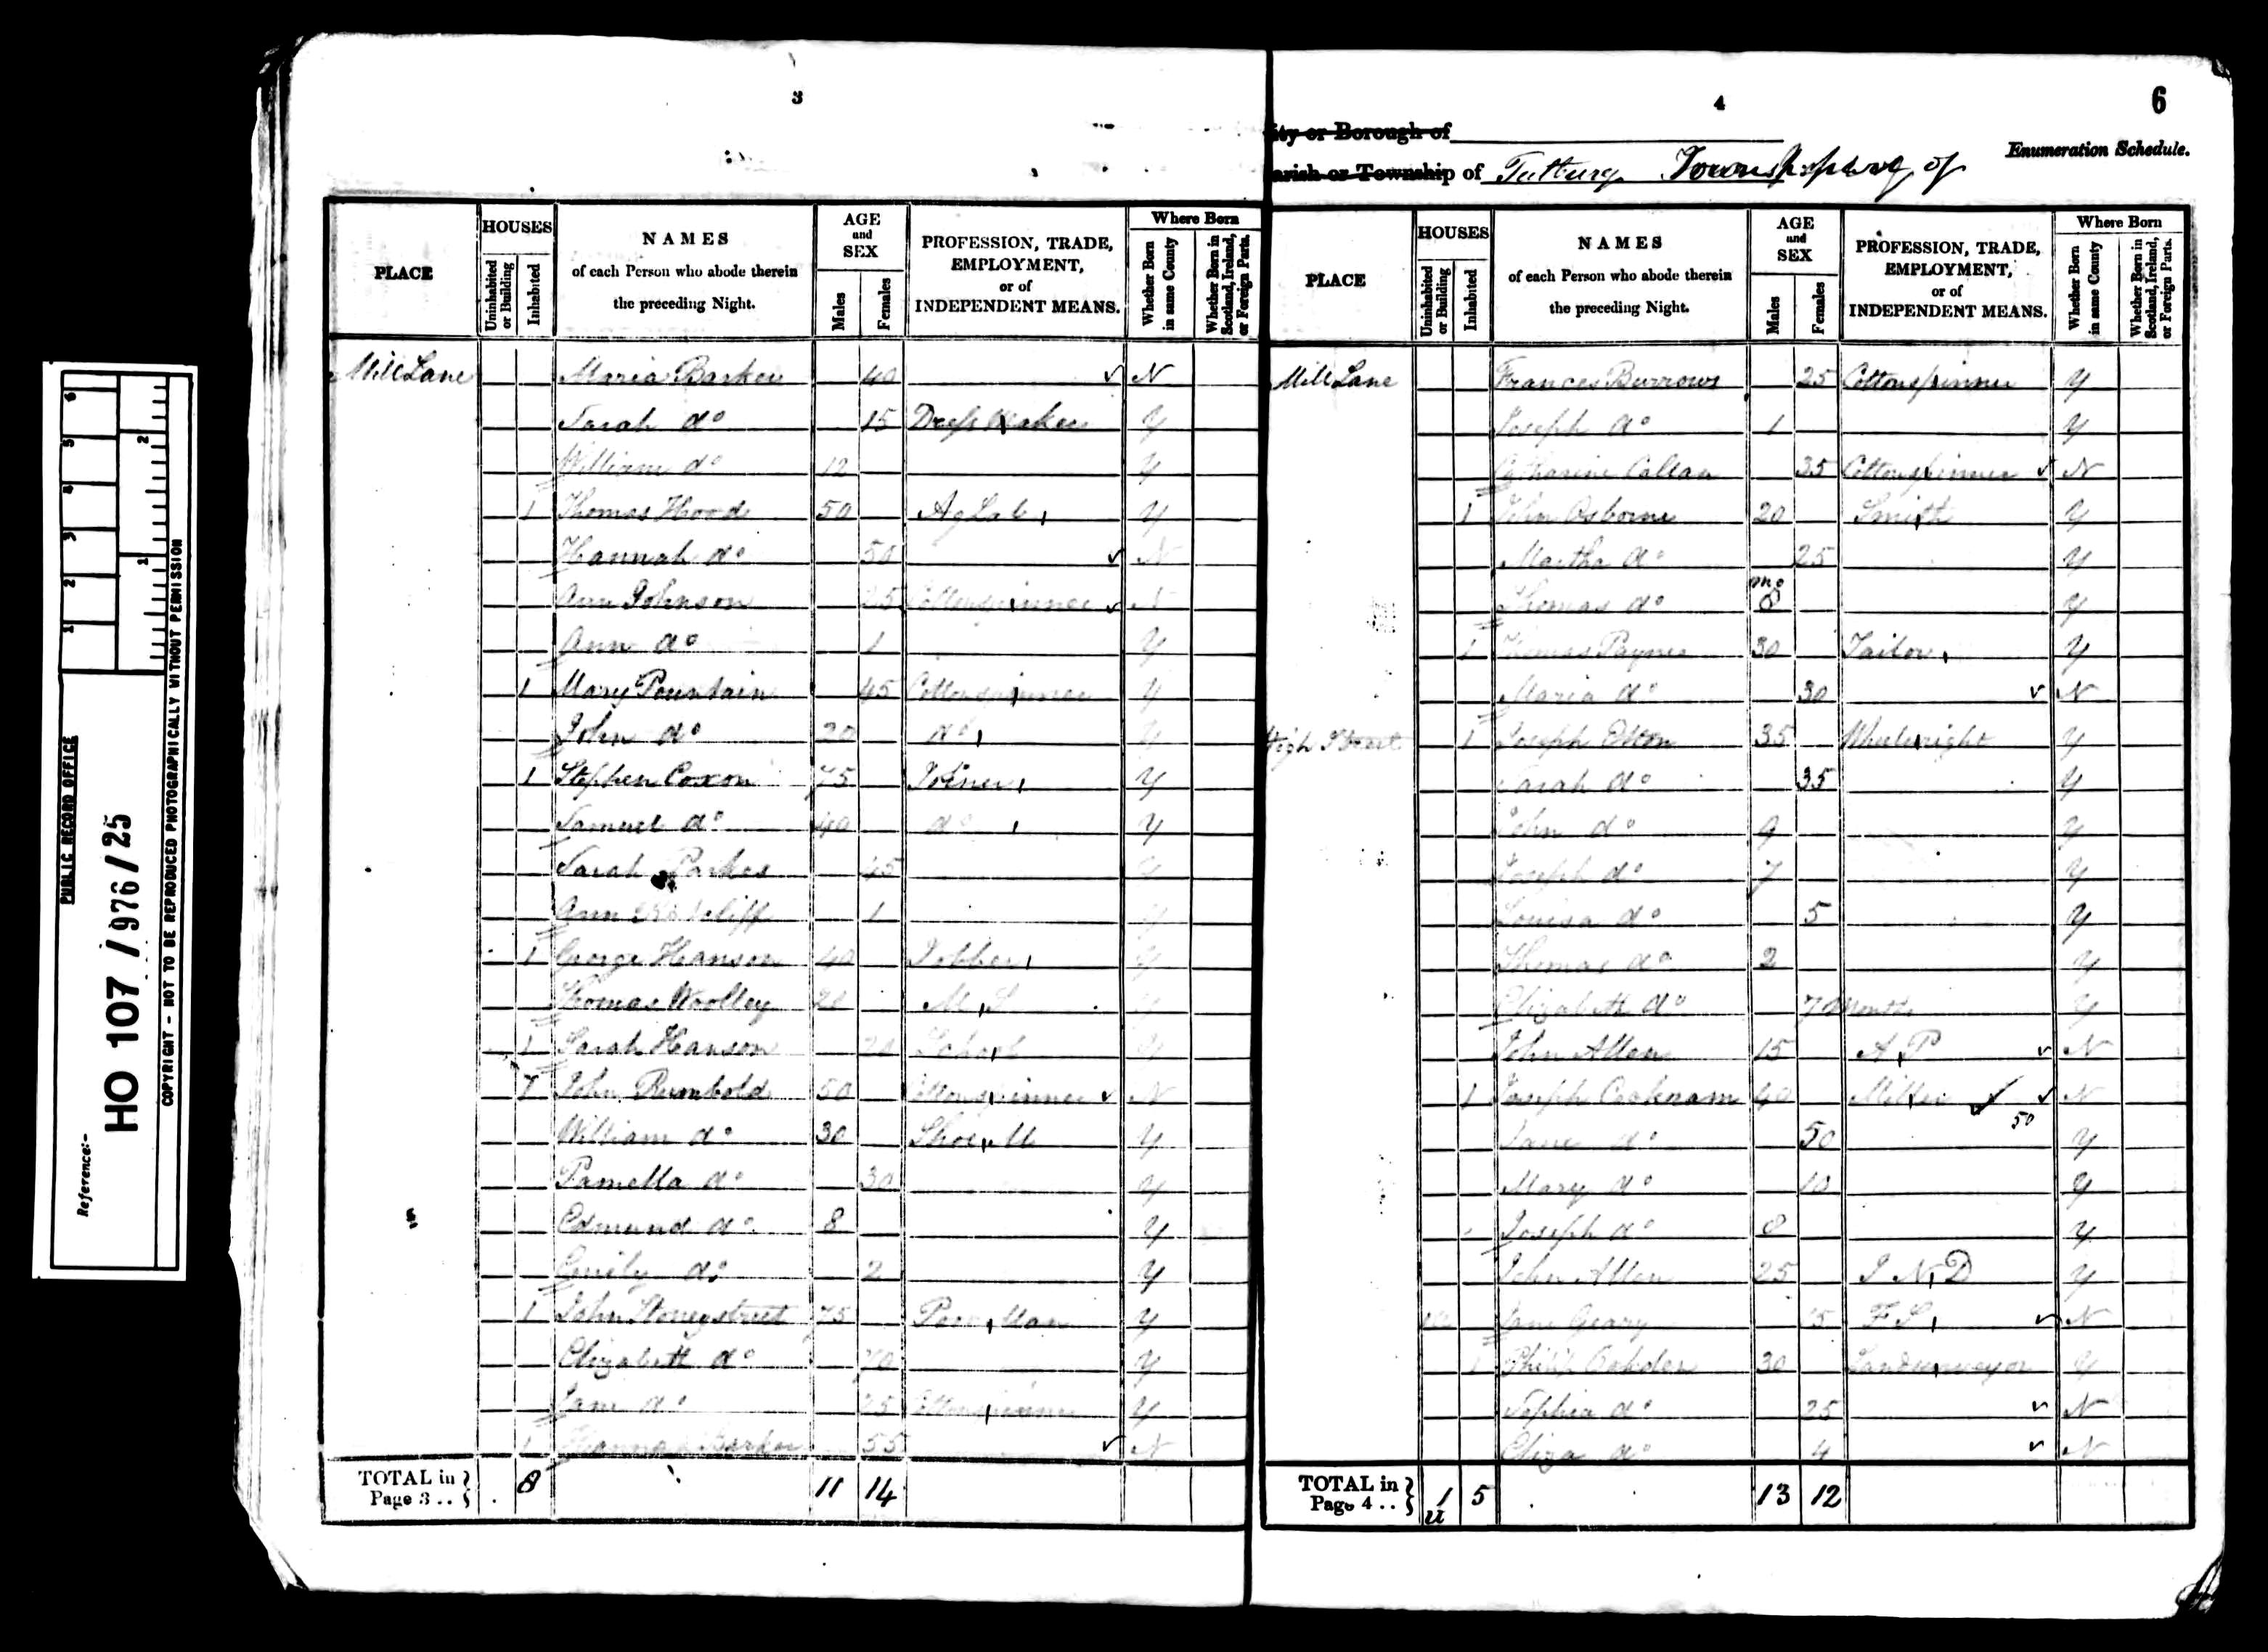 PUBLIC RECORD OFFICE
Reference:-
HO 107 / 976 / 25
COPYRIGHT - NOT TO BE REPRODUCED PHOTOGRAPHICALLY WITHOUT PERMISSION
1 2 3 4 5 6
1 2
3
PLACE HOUSES Uninhabited or Building Inhabited NAMES of each Person who abode therein the preceding Night. AGE and SEX Males Females PROFESSION, TRADE, EMPLOYMENT, or of INDEPENDENT MEANS. Where Born Whether Born in same County Whether Born in Scotland, Ireland, or Foreign Parts.
Mill Lane Maria Barker 40 N
Sarah do 15 Dress Maker Y
William do 12 Y
1 Thomas Hood 50 Ag Lab Y
Hannah do 50 N
Ann Johnson 25 Cottonspinner N
Ann do 1 Y
1 Mary Pountain 45 Cottonspinner Y
John do 20 do Y
1 Stephen Coxon 75 Joiner Y
Samuel do 40 do Y
Sarah Parkes 45 Y
Ann 1 Y
1 George Hanson 40 Jobber Y
Thomas Woolley 20 M S Y
1 Sarah Hanson 20 School Y
1 John Rumbold 50 Cottonspinner N
William do 30 Shoe M Y
Pamella do 30 Y
Edmund do 8 Y
Emily do 2 Y
1 John Stoneystreet 75 Poor Man Y
Elizabeth do 70 Y
Jane do 45 Cottonspinner Y
1 Hannah Barker 55 N
TOTAL in Page 3 .. 8 11 14
4
6
City or Borough of
Enumeration Schedule.
Parish or Township of Tutbury Township of
PLACE HOUSES Uninhabited or Building Inhabited NAMES of each Person who abode therein the preceding Night. AGE and SEX Males Females PROFESSION, TRADE, EMPLOYMENT, or of INDEPENDENT MEANS. Where Born Whether Born in same County Whether Born in Scotland, Ireland, or Foreign Parts.
Mill Lane Frances Burrows 25 Cottonspinner Y
Joseph do 1 Y
Catharine Callan 35 Cottonspinner N
1 John Osborne 20 Smith Y
Martha do 25 Y
Thomas do mo 8 Y
1 Thomas Payne 30 Tailor Y
Maria do 30 N
High Street 1 Joseph Elton 35 Wheelwright Y
Sarah do 35 Y
John do 9 Y
Joseph do 7 Y
Louisa do 5 Y
Thomas do 2 Y
Elizabeth do 7 Months Y
John Allen 15 A P N
1 Joseph Cooknam 40 Miller N
Jane do 50 50 Y
Mary do 10 Y
Joseph do 8 Y
John Allen 25 I N D Y
Jane Geary 15 F S N
1 Philip 30 Landsurveyor Y
Sophia do 25 N
Eliza do 4 N
TOTAL in Page 4 .. 1 u 5 13 12